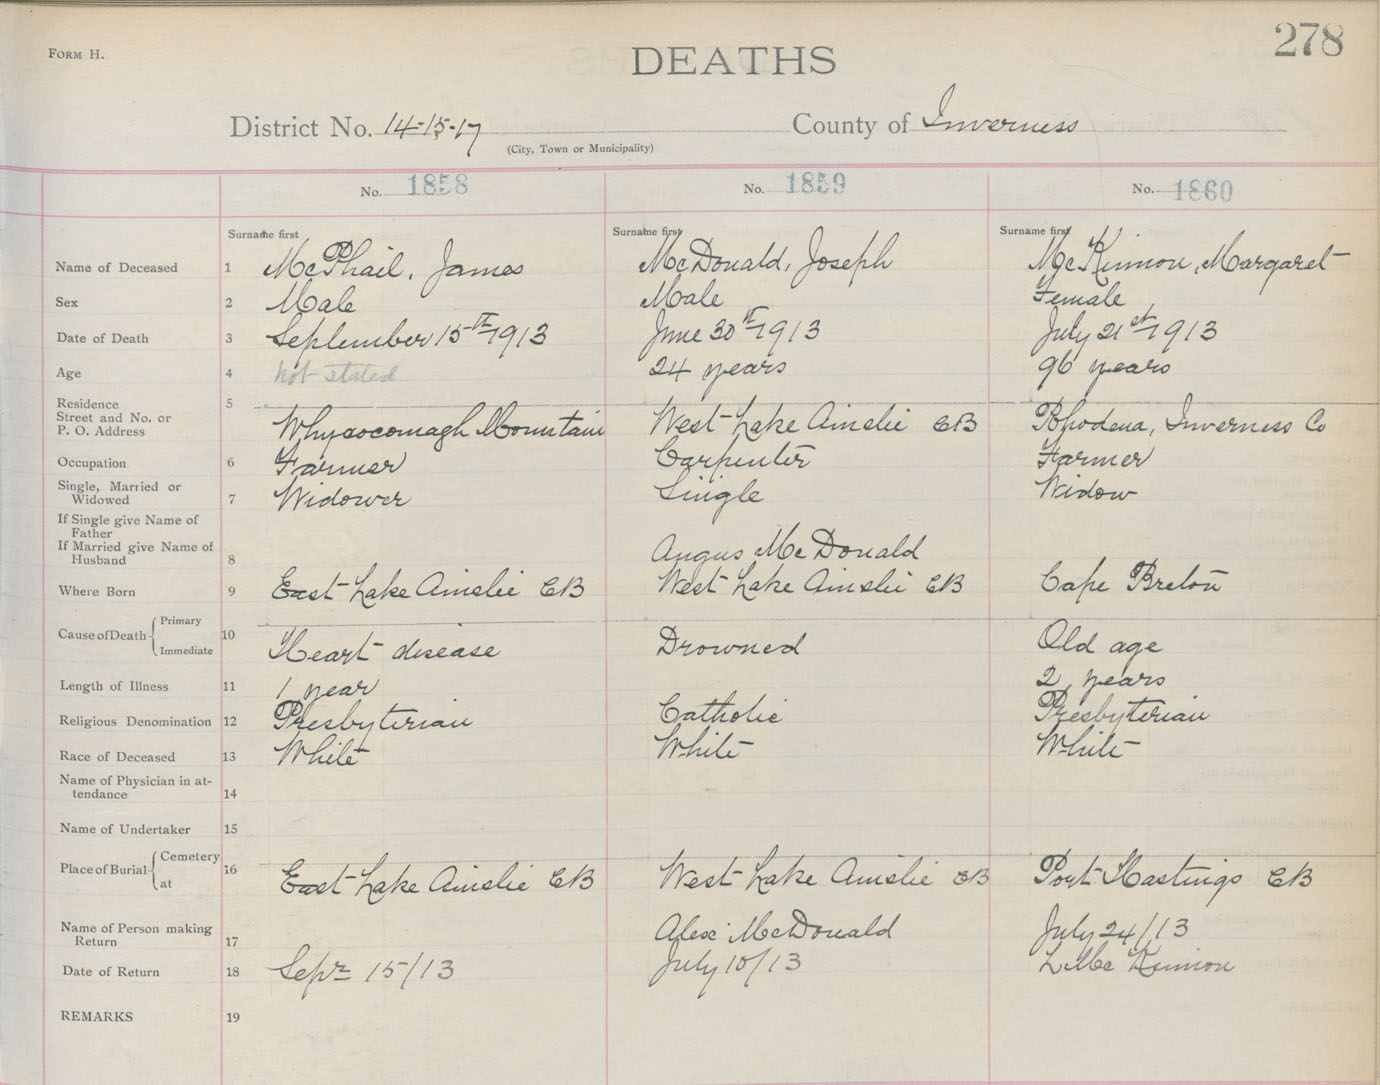 FORM H.
DEATHS
278
District No. 14-15-17
County of Inverness
(City, Town or Municipality)
No. 1858
No. 1859
No. 1860
Surname first
Surname first
Surname first
Name of Deceased 1 McPhail, James McDonald, Joseph McKinnon, Margaret
Sex 2 Male Male Female
Date of Death 3 September 15th 1913 June 30th 1913 July 21st 1913
Age 4 Not stated 24 years 96 years
Residence 5
Street and No. or
P. O. Address Whycocomagh Mountain West Lake Ainslie CB Rhodena, Inverness Co
Occupation 6 Farmer Carpenter Farmer
Single, Married or
Widowed 7 Widower Single Widow
If Single give Name of
Father
If Married give Name of
Husband 8 Angus McDonald
Where Born 9 East Lake Ainslie CB West Lake Ainslie CB Cape Breton
Cause of Death Primary 10
Immediate Heart disease Drowned Old age
Length of Illness 11 1 year 2 years
Religious Denomination 12 Presbyterian Catholic Presbyterian
Race of Deceased 13 White White White
Name of Physician in at-
tendance 14
Name of Undertaker 15
Place of Burial Cemetery 16
at East Lake Ainslie CB West Lake Ainslie CB Port Hastings CB
Name of Person making
Return 17 Alex McDonald July 24/13
Date of Return 18 Sepr 15/13 July 10/13 L McKinnon
REMARKS 19